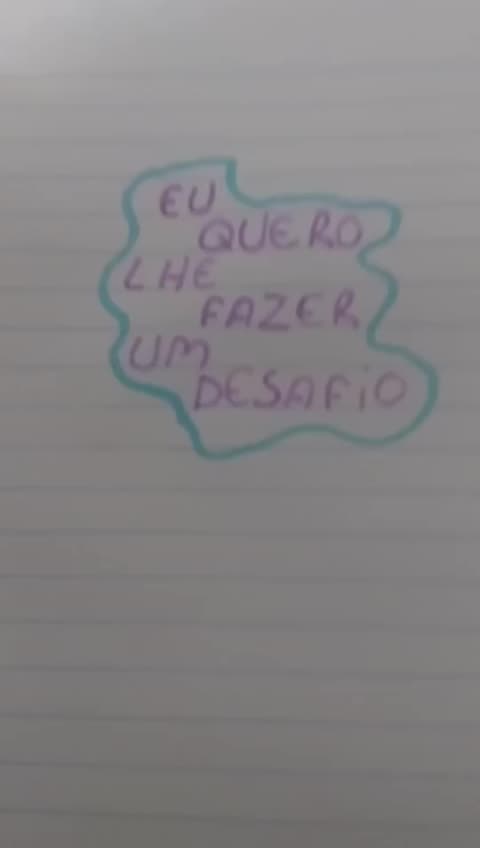 EU
QUERO
LHE
FAZER
UM
DESAFiO